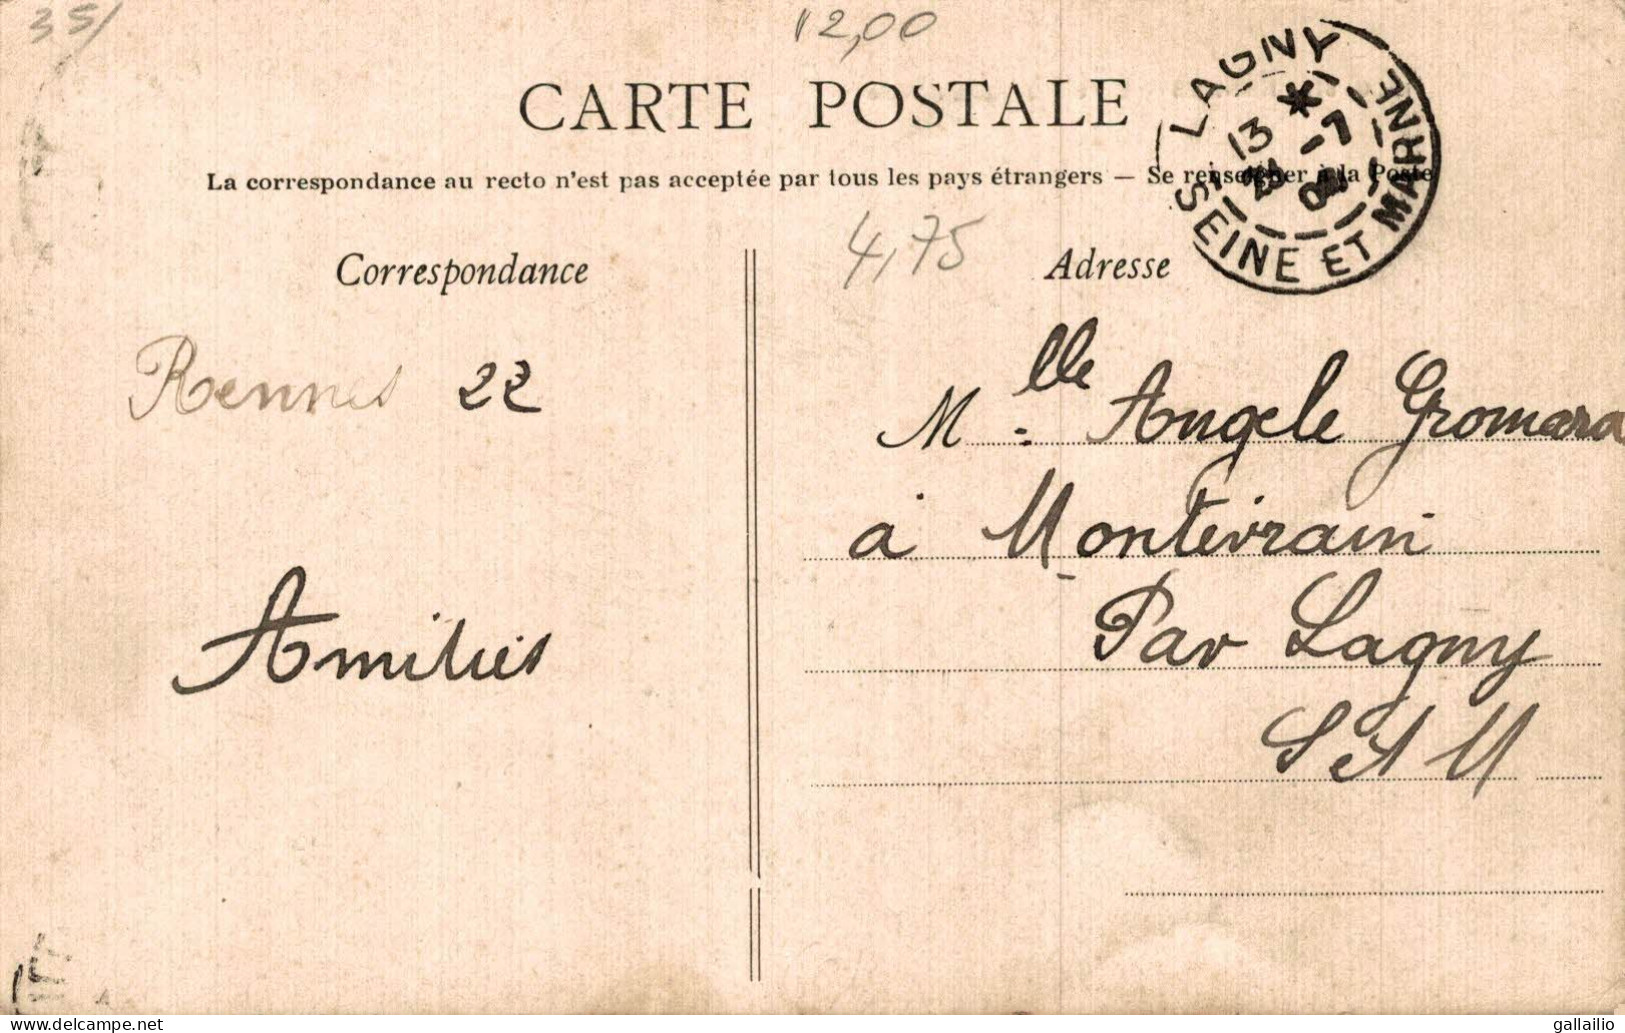 35/
12,00
CARTE POSTALE
La correspondance au recto n'est pas acceptée par tous les pays étrangers — Se renseigner à la Poste
LAGNY
13 * -7
SEINE ET MARNE
4,75
Correspondance
Adresse
Rennes 22
Amitiés
Mlle Angele Gromard
à Montévrain
Par Lagny
S et M
delcampe.net
gallailio